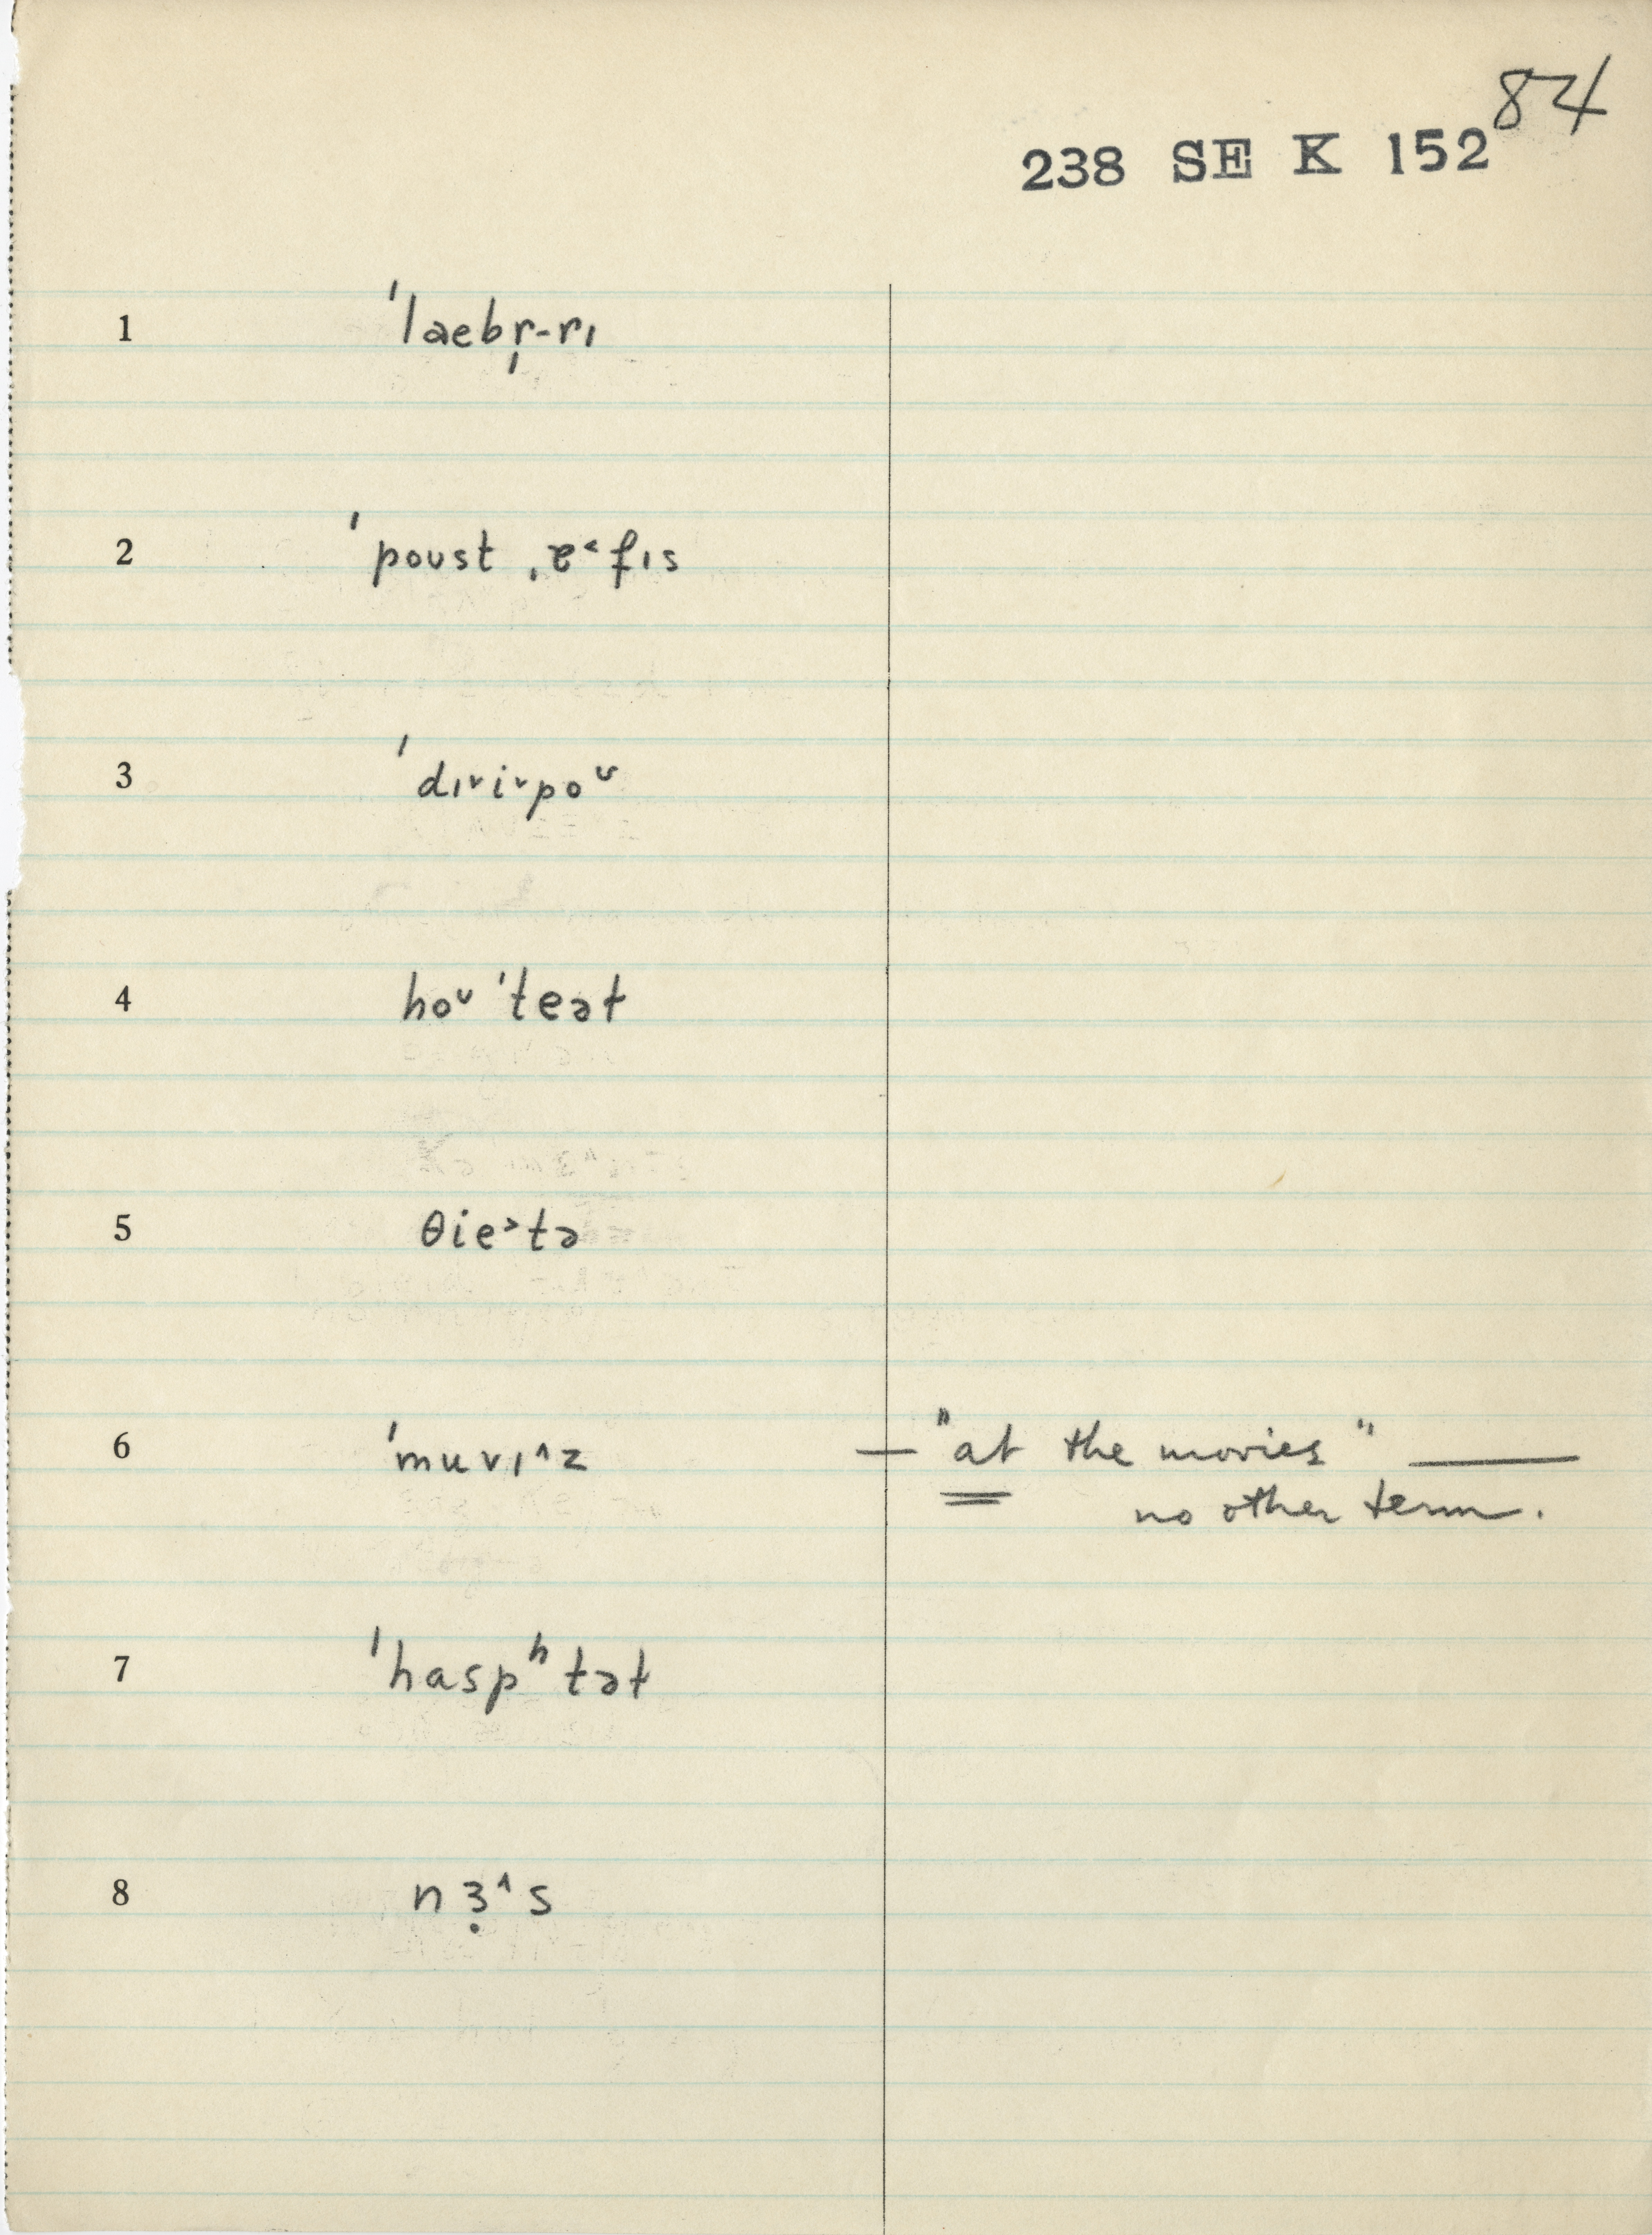 84
238 SE K 152
1 ˈlaebr̩-rɪ
2 ˈpoust ˌɐ˂fɪs
3 ˈdɪ˅i˅poᶸ
4 hoᶸˈteəɫ
5 θie˃tə
6 ˈmuvɪ^z — "at the movies" —
no other term.
7 ˈhaspʰtəɫ
8 nɜ̣^s